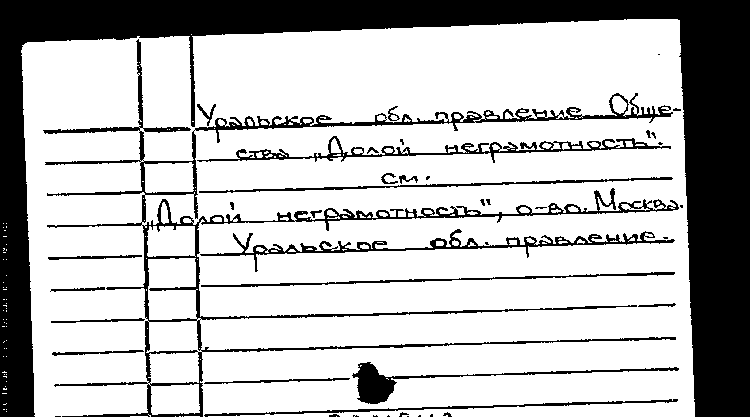 Уральское обл. правление Обще-
ства „Долой неграмотность".
см.
„Долой неграмотность", о-во. Москва.
Уральское обл. правление.